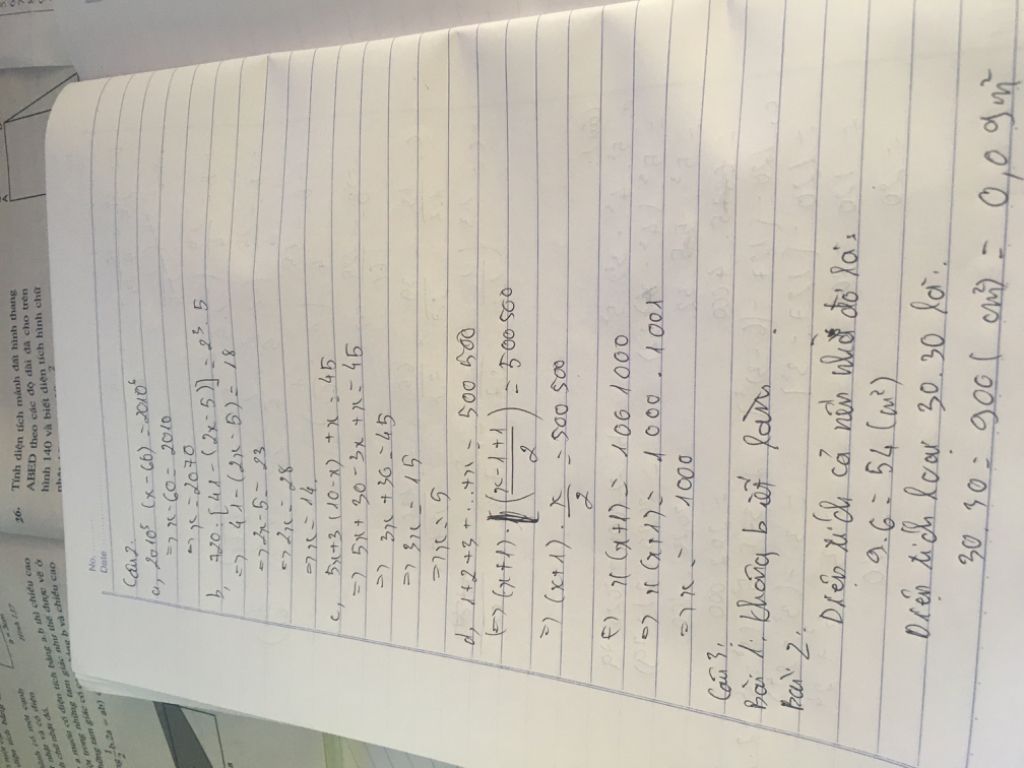 No.
Date
Câu 2.
a, 2010⁵ (x-60) = 2010⁶
=> x-60 = 2010
=> x = 2070
b, 720 : [41-(2x-5)] = 2³.5
=> 41-(2x-5) = 18
=> 2x-5 = 23
=> 2x = 28
=> x = 14
c, 5x+3(10-x)+x = 45
=> 5x+30-3x+x = 45
=> 3x+30 = 45
=> 3x = 15
=> x = 5
d, 1+2+3+...+x = 500 500
(=> (x+1).((x-1+1)/2) = 500500
=> (x+1). x/2 = 500 500
(=) x(x+1) = 1001000
=> x(x+1) = 1 000 . 1001
=> x = 1000
Câu 3.
Bài 1: không biết làm
Bài 2:
Diện tích cả nền nhà đó là:
9.6 = 54 (m²)
Diện tích loại 30.30 là:
30.30 = 900 (cm²) = 0,09 m²
26. Tính diện tích mảnh đất hình thang
ABED theo các độ dài đã cho trên
hình 140 và biết diện tích hình chữ